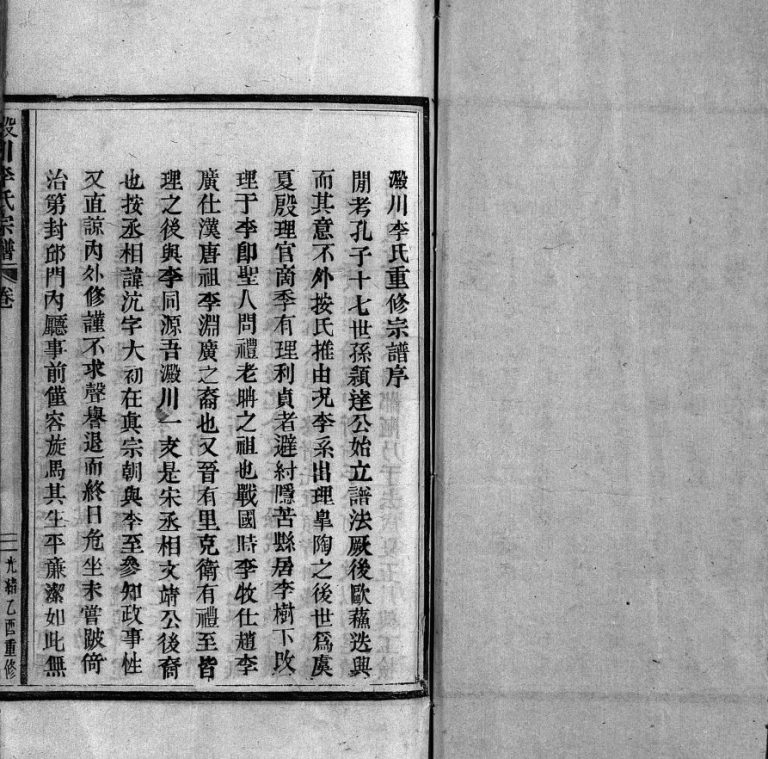 瀫川李氏重修宗譜序
閒考孔子十七世孫頴達公始立譜法厥後歐蘇迭興
而其意不外按氏推由况李系出理臯陶之後世爲虞
夏殷理官商季有理利貞者避紂隱苦縣居李樹下改
理于李卽聖人問禮老聃之祖也戰國時李牧仕趙李
廣仕漢唐祖李淵廣之裔也又晉有里克衛有禮至皆
理之後與李同源吾瀫川一支是宋丞相文靖公後裔
也按丞相諱沆字大初在眞宗朝與李至參知政事性
又直諒內外修謹不求聲譽退而終日危坐未嘗跛倚
治第封邱門內廳事前僅容旋馬其生平廉潔如此無
川李氏宗譜
卷
一
光緒乙酉重修